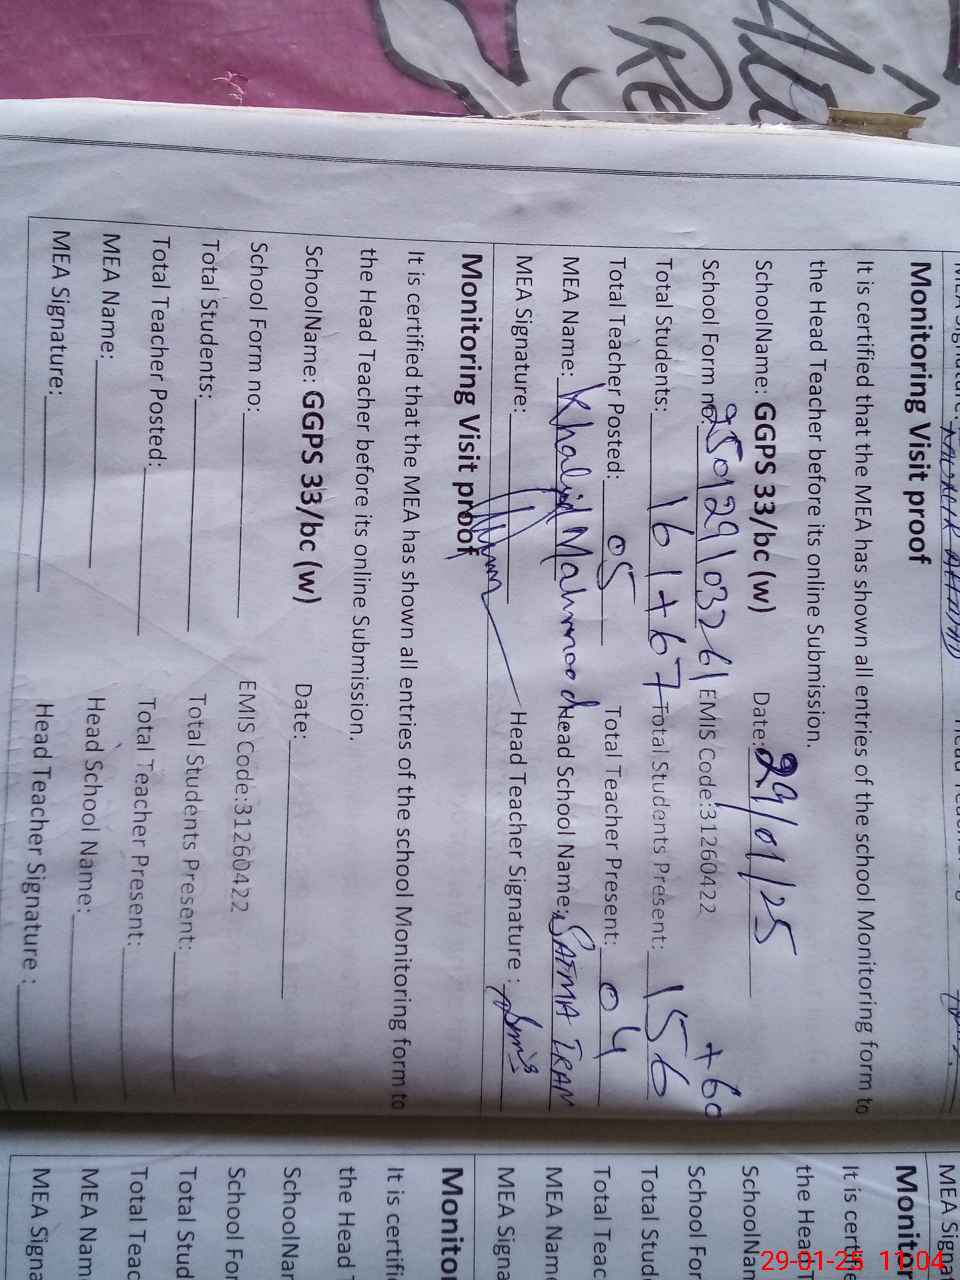 Monitoring Visit proof
It is certified that the MEA has shown all entries of the school Monitoring form to
the Head Teacher before its online Submission.
SchoolName: GGPS 33/bc (w) Date: 29/01/25
School Form no 250129103261 EMIS Code:31260422 +60
Total Students: 161+67 Total Students Present: 156
Total Teacher Posted: 05 Total Teacher Present: 04
MEA Name: Khalid Mahmood Head School Name: SAIMA IRAM
MEA Signature: Head Teacher Signature :
Monitoring Visit proof
It is certified that the MEA has shown all entries of the school Monitoring form to
the Head Teacher before its online Submission.
SchoolName: GGPS 33/bc (w) Date:
School Form no: EMIS Code:31260422
Total Students: Total Students Present:
Total Teacher Posted: Total Teacher Present:
MEA Name: Head School Name:
MEA Signature: Head Teacher Signature :
MEA Signa
Monitor
It is certifi
the Head T
SchoolNam
School For
Total Stud
Total Teac
MEA Name
MEA Signa
Monitor
It is certifi
the Head T
SchoolNar
School For
Total Stud
Total Teac
MEA Nam
MEA Signa
29-01-25 11:04